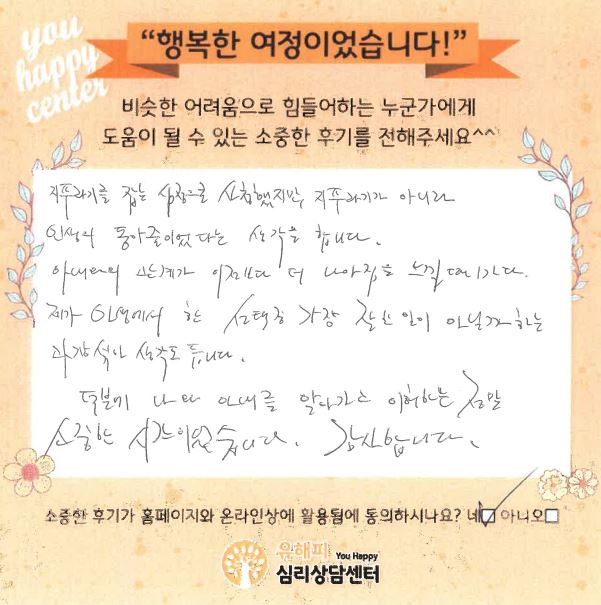 you
happy
center
“행복한 여정이었습니다!”
비슷한 어려움으로 힘들어하는 누군가에게
도움이 될 수 있는 소중한 후기를 전해주세요^^
지푸라기를 잡는 심정으로 신청했지만, 지푸라기가 아니라
인생의 동아줄이었다는 생각을 합니다.
아내와의 관계가 어제보다 더 나아짐을 느낄 때이기다.
제가 인생에서 한 선택중 가장 잘한 일이 아닐까 하는
과장섞인 생각도 듭니다.
덕분에 나와 아내를 알아가고 이해하는 정말
소중한 시간이었습니다. 감사합니다.
소중한 후기가 홈페이지와 온라인상에 활용됨에 동의하시나요? 네 아니오
유해피 You Happy
심리상담센터